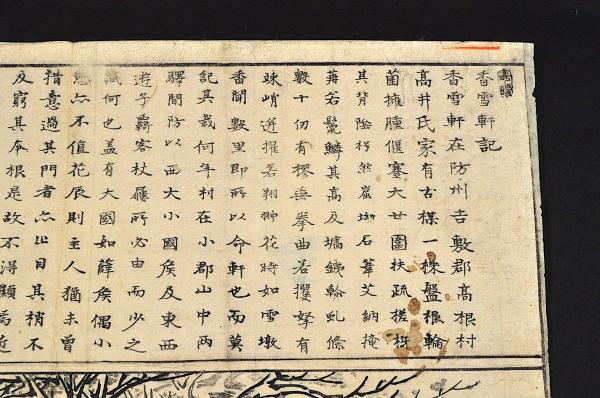 香雪軒記
香雪軒在防州吉敷郡高根村
高井氏家有古楳一株盤根輪
菌擁腫偃蹇大廿圍扶疏槎枒
其背陰朽然窟坳石葦艾納掩
蒔若鬣鱗其高及墉銕幹虬條
數十仞有樛垂拳曲若攫拏有
竦峭迸擢若翔翀花時如雪墩
香聞數里即所以命軒也而莫
記其栽何年村在小郡山中兩
驛間防以西大小國侯及東西
遊子覇客杖屨所必由而少之
識何也盖有大國如薛侯偶小
憩亦不值花辰則主人猶未曾
措意過其門者亦止目其梢不
及窮其全根是故不得顯焉近